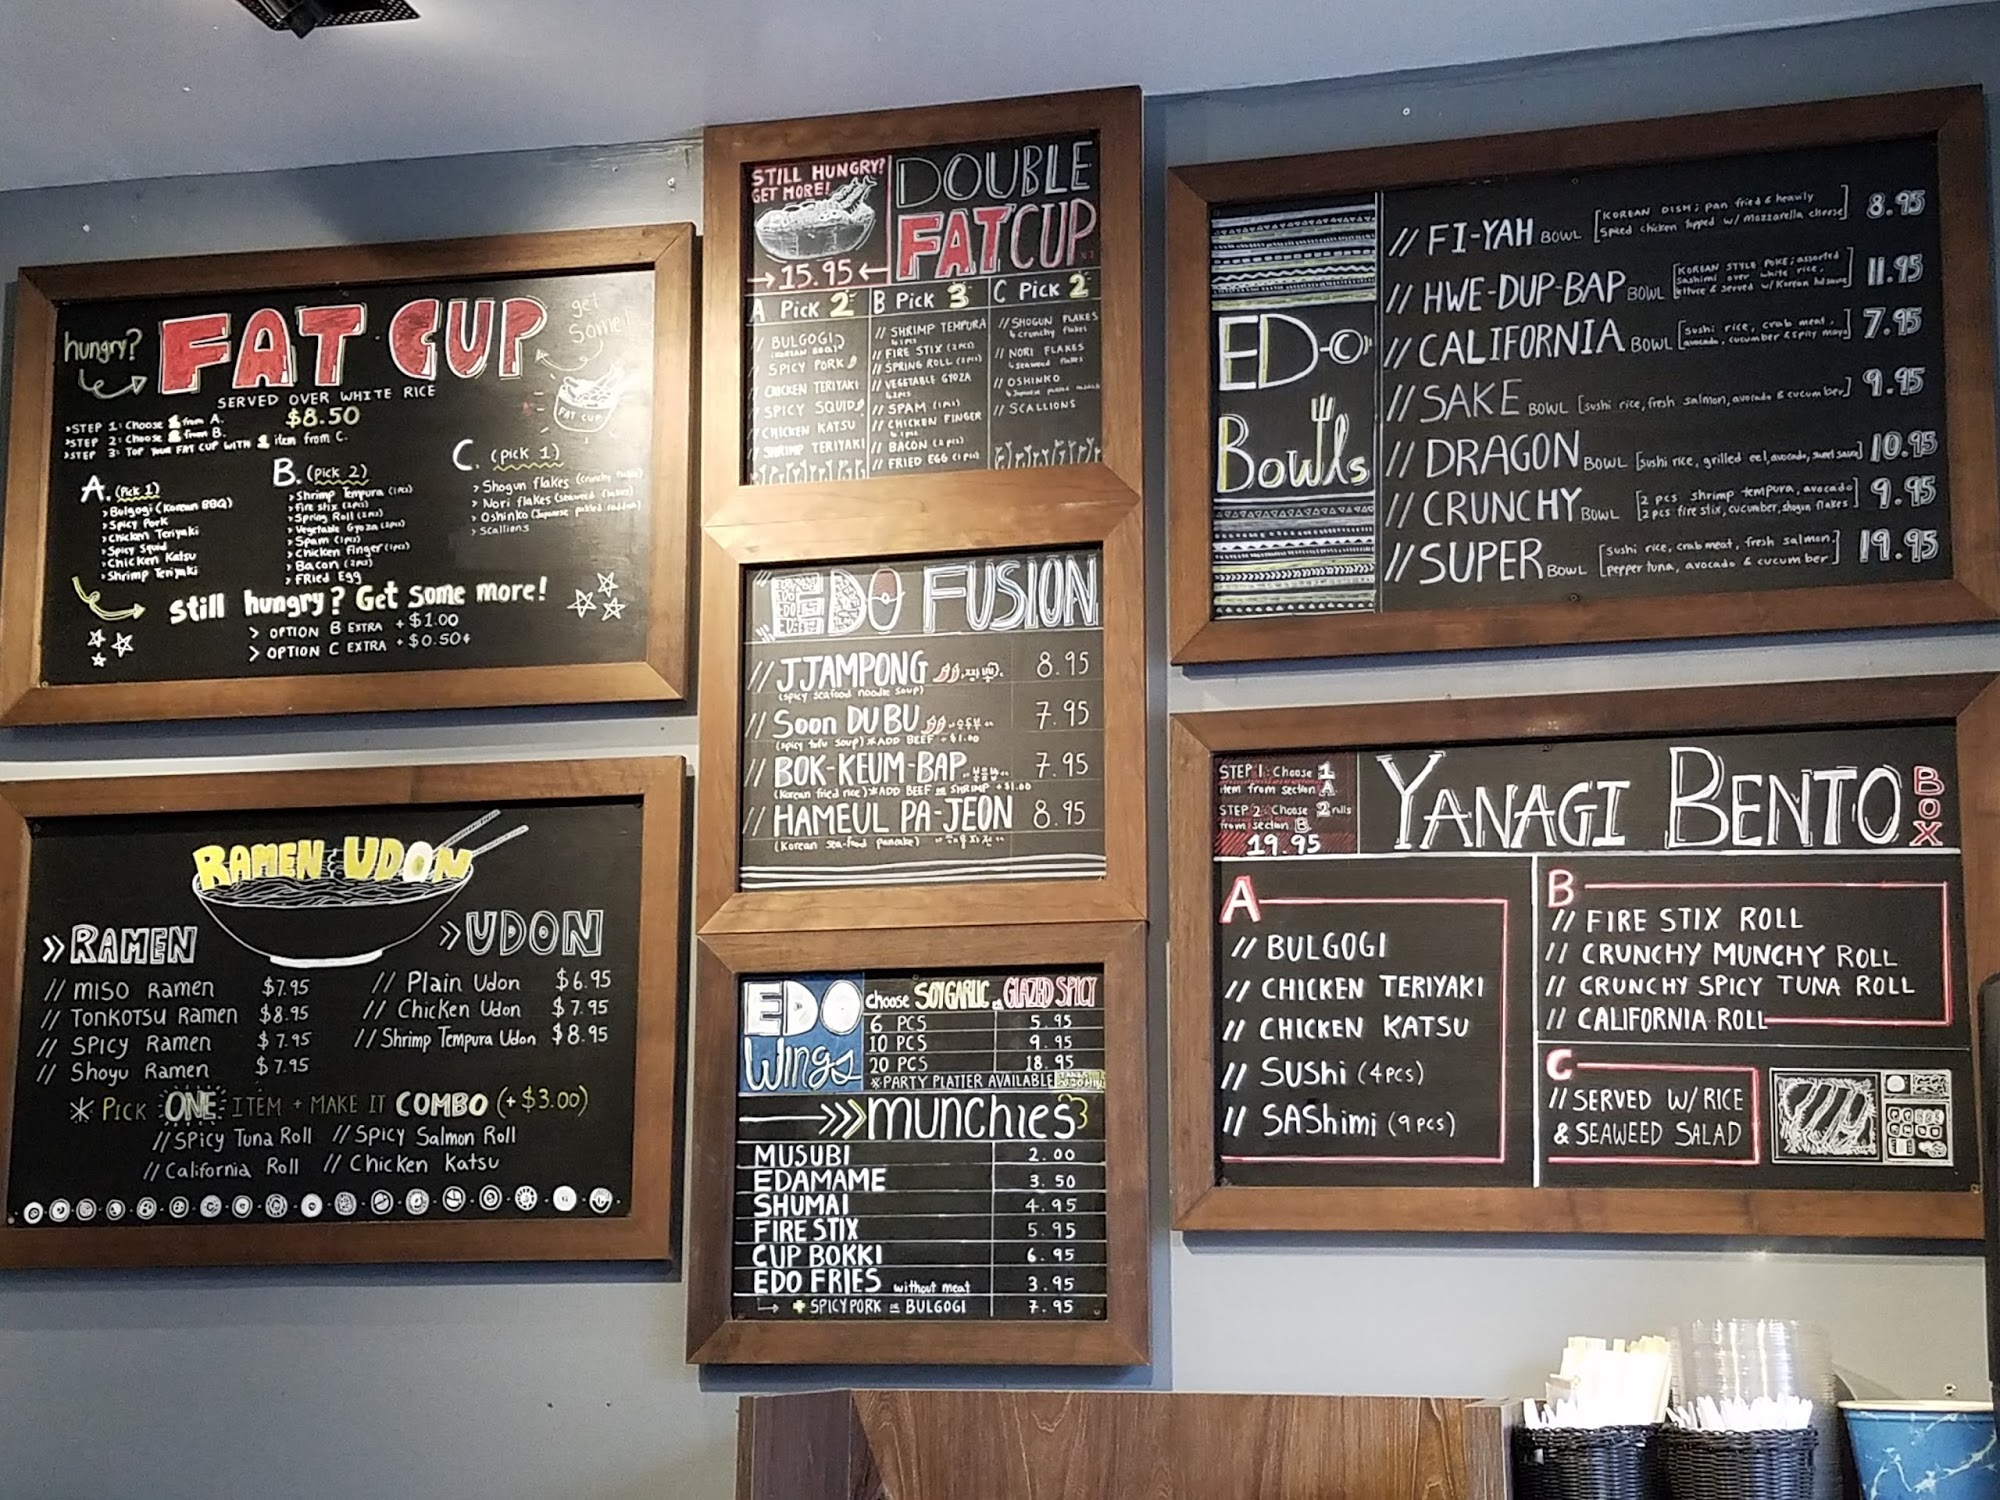 hungry?
FAT CUP
get
some!
SERVED OVER WHITE RICE
$8.50
FAT CUP
>STEP 1: Choose 1 from A.
>STEP 2: Choose 2 from B.
>STEP 3: TOP YOUR FAT CUP WITH 1 item from C.
A. (Pick 1)
> Bulgogi (Korean BBQ)
> Spicy Pork
> Chicken Teriyaki
> Spicy Squid
> Chicken Katsu
> Shrimp Teriyaki
B. (pick 2)
> Shrimp Tempura (1pcs)
> Fire stix (2pcs)
> Spring Roll (2pcs)
> Vegetable Gyoza (2pcs)
> Spam (1pcs)
> Chicken Finger (1pcs)
> Bacon (2pcs)
> FRied Egg
C. (pick 1)
> Shogun flakes (crunchy flakes)
> Nori flakes (seaweed flakes)
> Oshinko (Japanese pickled radish)
> Scallions
Still hungry? Get some more!
> OPTION B EXTRA + $1.00
> OPTION C EXTRA + $0.50¢
RAMEN & UDON
>> RAMEN
// MISO Ramen $7.95
// TONKOTSU Ramen $8.95
// SPICY Ramen $7.95
// Shoyu Ramen $7.95
>> UDON
// Plain Udon $6.95
// Chicken Udon $7.95
// Shrimp Tempura Udon $8.95
* PICK ONE ITEM + MAKE IT COMBO (+$3.00)
// SPICY TUNA ROLL // SPICY SALMON ROLL
// California Roll // Chicken Katsu
STILL HUNGRY?
GET MORE!
→15.95←
DOUBLE
FAT CUP
A Pick 2
// BULGOGI
(KOREAN BBQ)
// SPICY PORK
// CHICKEN TERIYAKI
// SPICY SQUID
// CHICKEN KATSU
// SHRIMP TERIYAKI
B Pick 3
// SHRIMP TEMPURA
↳ 1pcs
// FIRE STIX (2pcs)
// SPRING ROLL (2pcs)
// VEGETABLE GYOZA
↳ 2pcs
// SPAM (1pcs)
// CHICKEN FINGER
↳ 1pcs
// BACON (2pcs)
// FRIED EGG (1pcs)
C Pick 2
// SHOGUN FLAKES
↳ crunchy flakes
// NORI FLAKES
↳ seaweed flakes
// OSHINKO
↳ Japanese pickled radish
// SCALLIONS
EDO FUSION
// JJAMPONG 짬뽕 8.95
(spicy seafood noodle soup)
// Soon DUBU 순두부 7.95
(spicy tofu soup) *ADD BEEF + $1.00
// BOK-KEUM-BAP 볶음밥 7.95
(Korean fried rice) *ADD BEEF OR SHRIMP + $1.00
// HAMEUL PA-JEON 8.95
(Korean sea-food pancake) 해물파전
EDO Wings
choose SOY GARLIC or GLAZED SPICY
6 PCS 5.95
10 PCS 9.95
20 PCS 18.95
*PARTY PLATTER AVAILABLE
>>> munchies
MUSUBI 2.00
EDAMAME 3.50
SHUMAI 4.95
FIRE STIX 5.95
CUP BOKKI 6.95
EDO FRIES without meat 3.95
↳ + SPICY PORK OR BULGOGI 7.95
ED-O
Bowls
// FI-YAH BOWL [KOREAN DISH; pan fried & heavily spiced chicken topped w/ mozzarella cheese] 8.95
// HWE-DUP-BAP BOWL [KOREAN STYLE POKE; assorted sashimi over white rice, lettuce & served w/ Korean hot sauce] 11.95
// CALIFORNIA BOWL [sushi rice, crab meat, avocado, cucumber & spicy mayo] 7.95
// SAKE BOWL [sushi rice, fresh salmon, avocado & cucumber] 9.95
// DRAGON BOWL [sushi rice, grilled eel, avocado, sweet sauce] 10.95
// CRUNCHY BOWL [2 pcs shrimp tempura, avocado 2 pcs fire stix, cucumber, shogun flakes] 9.95
// SUPER BOWL [sushi rice, crab meat, fresh salmon, pepper tuna, avocado & cucumber] 19.95
STEP 1: Choose 1
item from section A.
STEP 2: Choose 2 rolls
from section B.
19.95
YANAGI BENTO BOX
A
// BULGOGI
// CHICKEN TERIYAKI
// CHICKEN KATSU
// SUShi (4pcs)
// SAShimi (9pcs)
B
// FIRE STIX ROLL
// CRUNCHY MUNCHY ROLL
// CRUNCHY SPICY TUNA ROLL
// CALIFORNIA ROLL
C
// SERVED W/ RICE
& SEAWEED SALAD